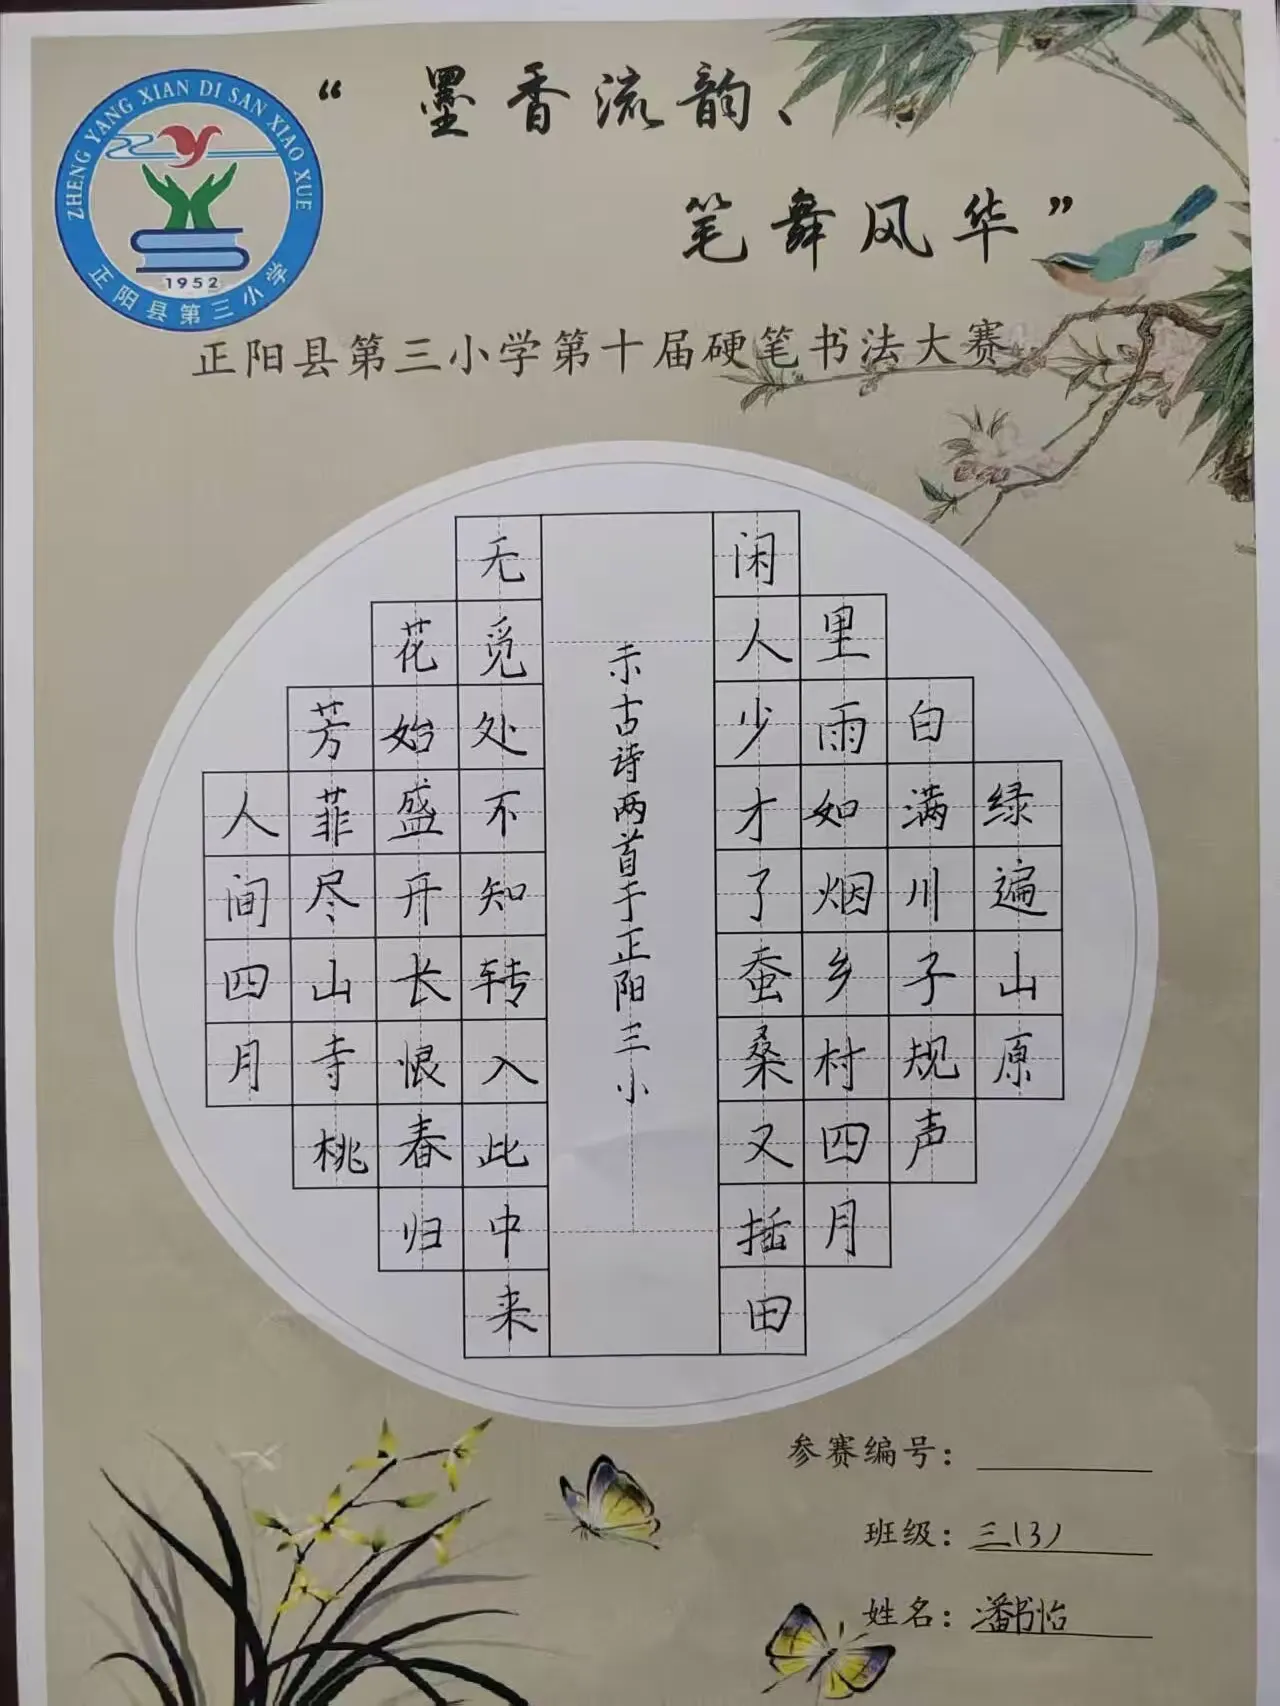 ZHENG YANG XIAN DI SAN XIAO XUE
1952
正阳县第三小学
“墨香流韵、
笔舞风华”
正阳县第三小学第十届硬笔书法大赛
绿遍山原
白满川子规声
里雨如烟乡村四月
闲人少才了蚕桑又插田
古诗两首于正阳三小
人间四月
芳菲尽山寺桃
花始盛开长恨春归
无觅处不知转入此中来
参赛编号：
班级：三(3)
姓名：潘书怡